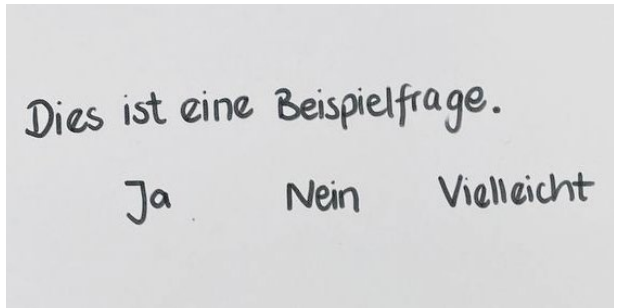 Dies ist eine Beispielfrage.
Ja Nein Vielleicht